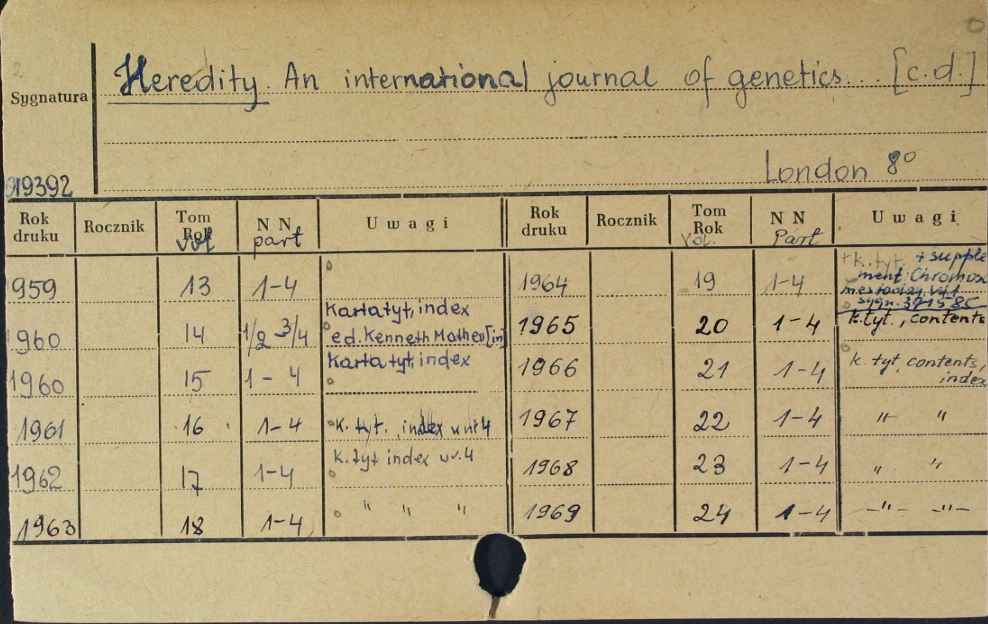 Heredity. An international journal of genetics... [c.d.]
Sygnatura
London 8°
19392
Rok druku Rocznik Tom Rok vol N N part Uwagi Rok druku Rocznik Tom Rok Vol. N N Part Uwagi
959 13 1-4
1960 14 1/2 3/4 Karta tyt, index ed. Kenneth Mather [in]
1960 15 1-4 Karta tyt, index
1961 16 1-4 K. tyt. index w nr 4
1962 17 1-4 K. tyt index w.4
1963 18 1-4 " " "
1964 19 1-4 +k. tyt. + supplement: Chromos sygn. 371585
1965 20 1-4 k. tyt., contents
1966 21 1-4 k. tyt, contents, index
1967 22 1-4 " "
1968 23 1-4 " "
1969 24 1-4 -"- -"-